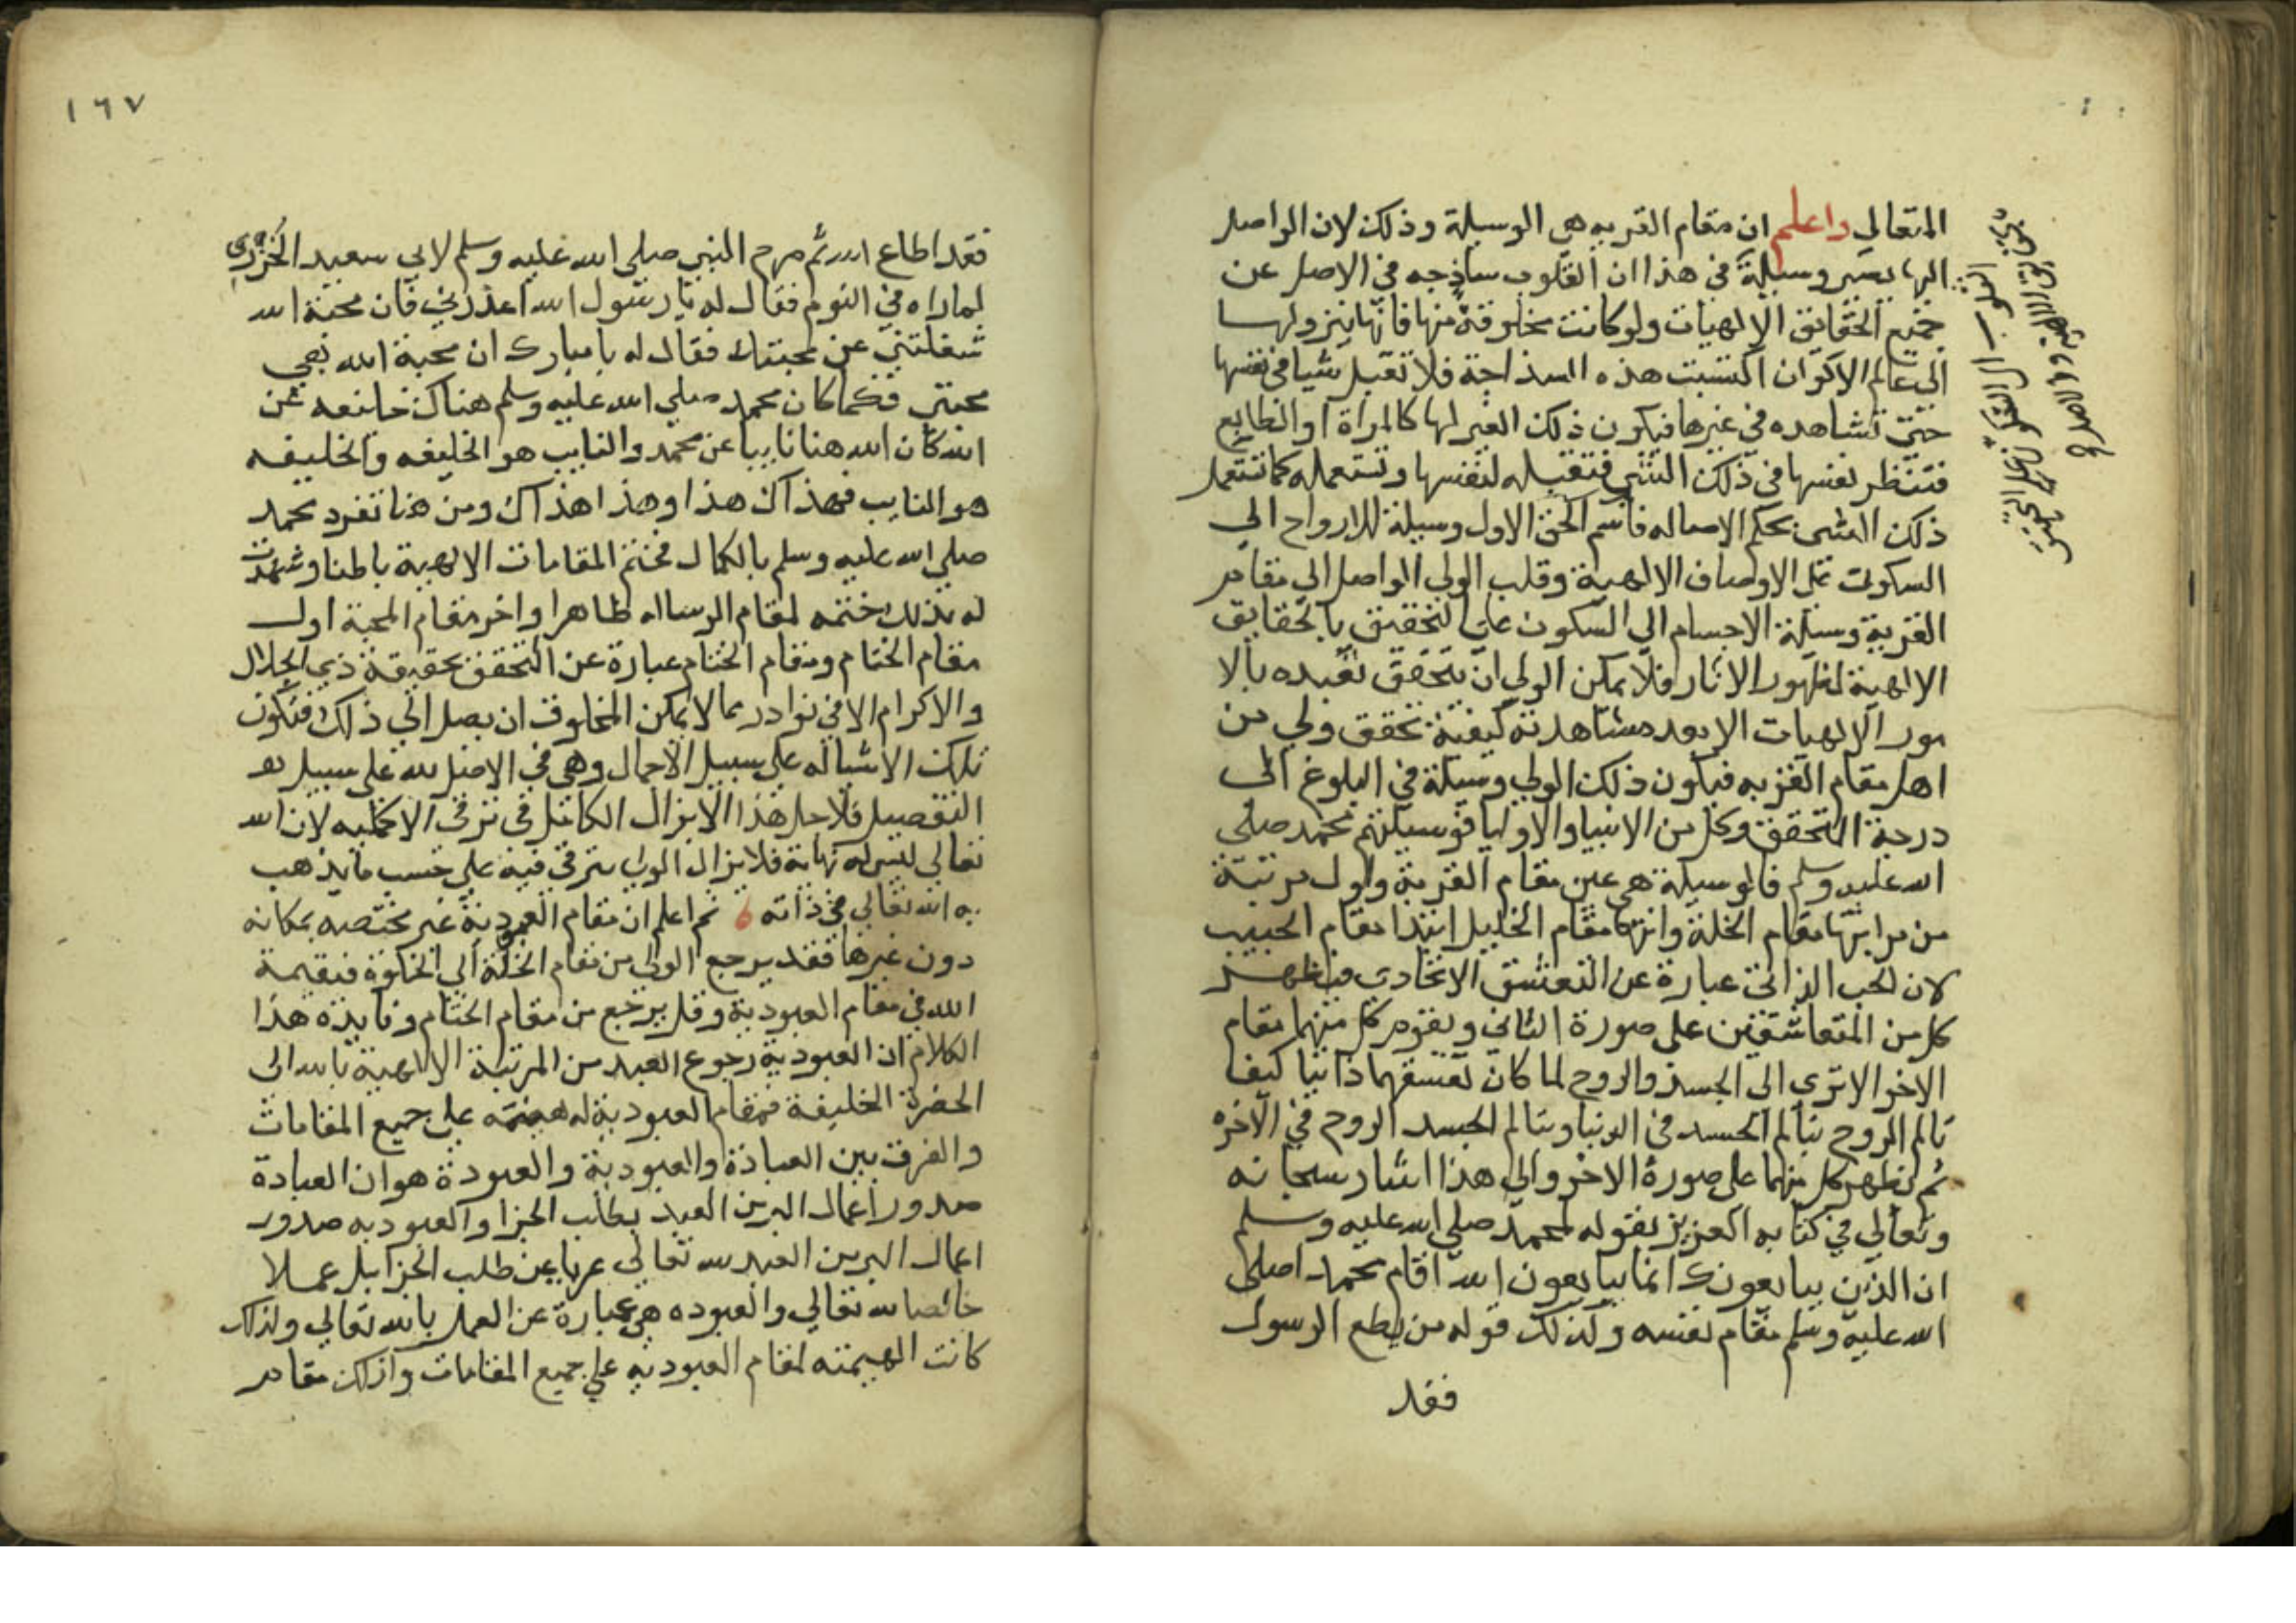 المتعالي واعلم ان مقام القربه هي الوسيلة وذلك لان الواصل
اليها يصير وسيلة في هذا ان القلوب ساذجه في الاصل عن
جميع الحقايق الالهيات ولو كانت مخلوقة منها فانها بنزولها
الى عالم الاكوان اكتسبت هذه السذاجة فلا تقبل شيا في نفسها
حتى تشاهده في غيرها فيكون ذلك الغير لها كالمراة او الطابع
فتنظر نفسها في ذلك الشي فتقبله لنفسها وتستعمله كما تستعمل
ذلك الشي بحكم الاصاله فاسم الحق الاول وسيلة للارواح الي
السكون على الاوصاف الالهية وقلب الولي الواصل الي مقام
القربة وسيلة الاجسام الي السكون على التحقيق بالحقايق
الالهية لظهور الاثار فلا يمكن الولي ان يتحقق تعبده بالا
مور الالهيات الا بعد مشاهدته كيفية تحقق ولي من
اهل مقام القربه فيكون ذلك الولي وسيلة في البلوغ الى
درجة التحقق وكل من الانبيا والاوليا فوسيلتهم محمد صلى
الله عليه وسلم فالوسيلة هي عين مقام القربة واول مرتبة
من مراتبها مقام الخلة وانتها مقام الخليل ابتدا مقام الحبيب
لان الحب الذاتي عبارة عن التعشق الاتحادي فيظهر
كل من المتعاشقين على صورة الثاني ويقوم كل منهما مقام
الاخر الا ترى الى الجسد والروح لما كان تعشقهما ذاتيا كيف
تالم الروح بتالم الجسد في الدنيا ويتالم الجسد الروح في الاخره
ثم يظهر كل منهما على صورة الاخر والى هذا اشار سبحانه
وتعالي في كتابه العزيز بقوله لمحمد صلى الله عليه وسلم
ان الذين يبايعونك انما يبايعون الله اقام محمد اصلى
الله عليه وسلم مقام نفسه وكذلك قوله من يطع الرسول
فقد
القلوب الي السكون على التحقيق
بحقايق الالهية
١٦٧
فقد اطاع الله ثم صرح النبي صلى الله عليه وسلم لابي سعيد الخرزي
لما راه في النوم فقال له يا رسول الله اعذرني فان محبة الله
شغلتني عن محبتك فقال له يا مبارك ان محبة الله هي
محبتي فكما كان محمد صلي الله عليه وسلم هناك خليفه عن
الله كان الله هنا نايبا عن محمد والنايب هو الخليفه والخليفه
هو النايب فهذاك هذا وهذا هذاك ومن هنا تفرد محمد
صلى الله عليه وسلم بالكمال فختم المقامات الالهية باطنا وشهدت
له بذلك ختمه لمقام الرساله ظاهرا واخر مقام المحبة اول
مقام الختام ومقام الختام عبارة عن التحقق بحقيقة ذي الجلال
والاكرام الا في نوادر مما لا يمكن المخلوق ان يصل الي ذلك فتكون
تلك الاشيا له على سبيل الاجمال وهي في الاصل لله على سبيل
التفصيل فلاجل هذا لا يزال الكامل في ترقي الاكمليه لان الله
تعالي ليس له نهاية فلا يزال الولي يترقى فيه على حسب ما يذهب
به الله تعالي في ذاته ثم اعلم ان مقام العبودية غير مختصه بمكانه
دون غيرها فقد يرجع الولي من مقام الخلة الي الخلق فيقيمه
الله في مقام العبودية وقد يرجع من مقام الختام وفايدة هذا
الكلام ان العبودية رجوع العبد من المرتبة الالهية بالله الى
الحضرة الخليقة فمقام العبودية له هيمنته على جميع المقامات
والفرق بين العبادة والعبودية والعبودة هو ان العبادة
صدور اعمال البر من العبد بطلب الجزا والعبوديه صدور
اعمال البر من العبد لله تعالى عريا عن طلب الجزا بل عملا
خالصا لله تعالي والعبوده هي عبارة عن العمل بالله تعالي ولذلك
كانت الهيمنه لمقام العبوديه علي جميع المقامات وكذلك مقام